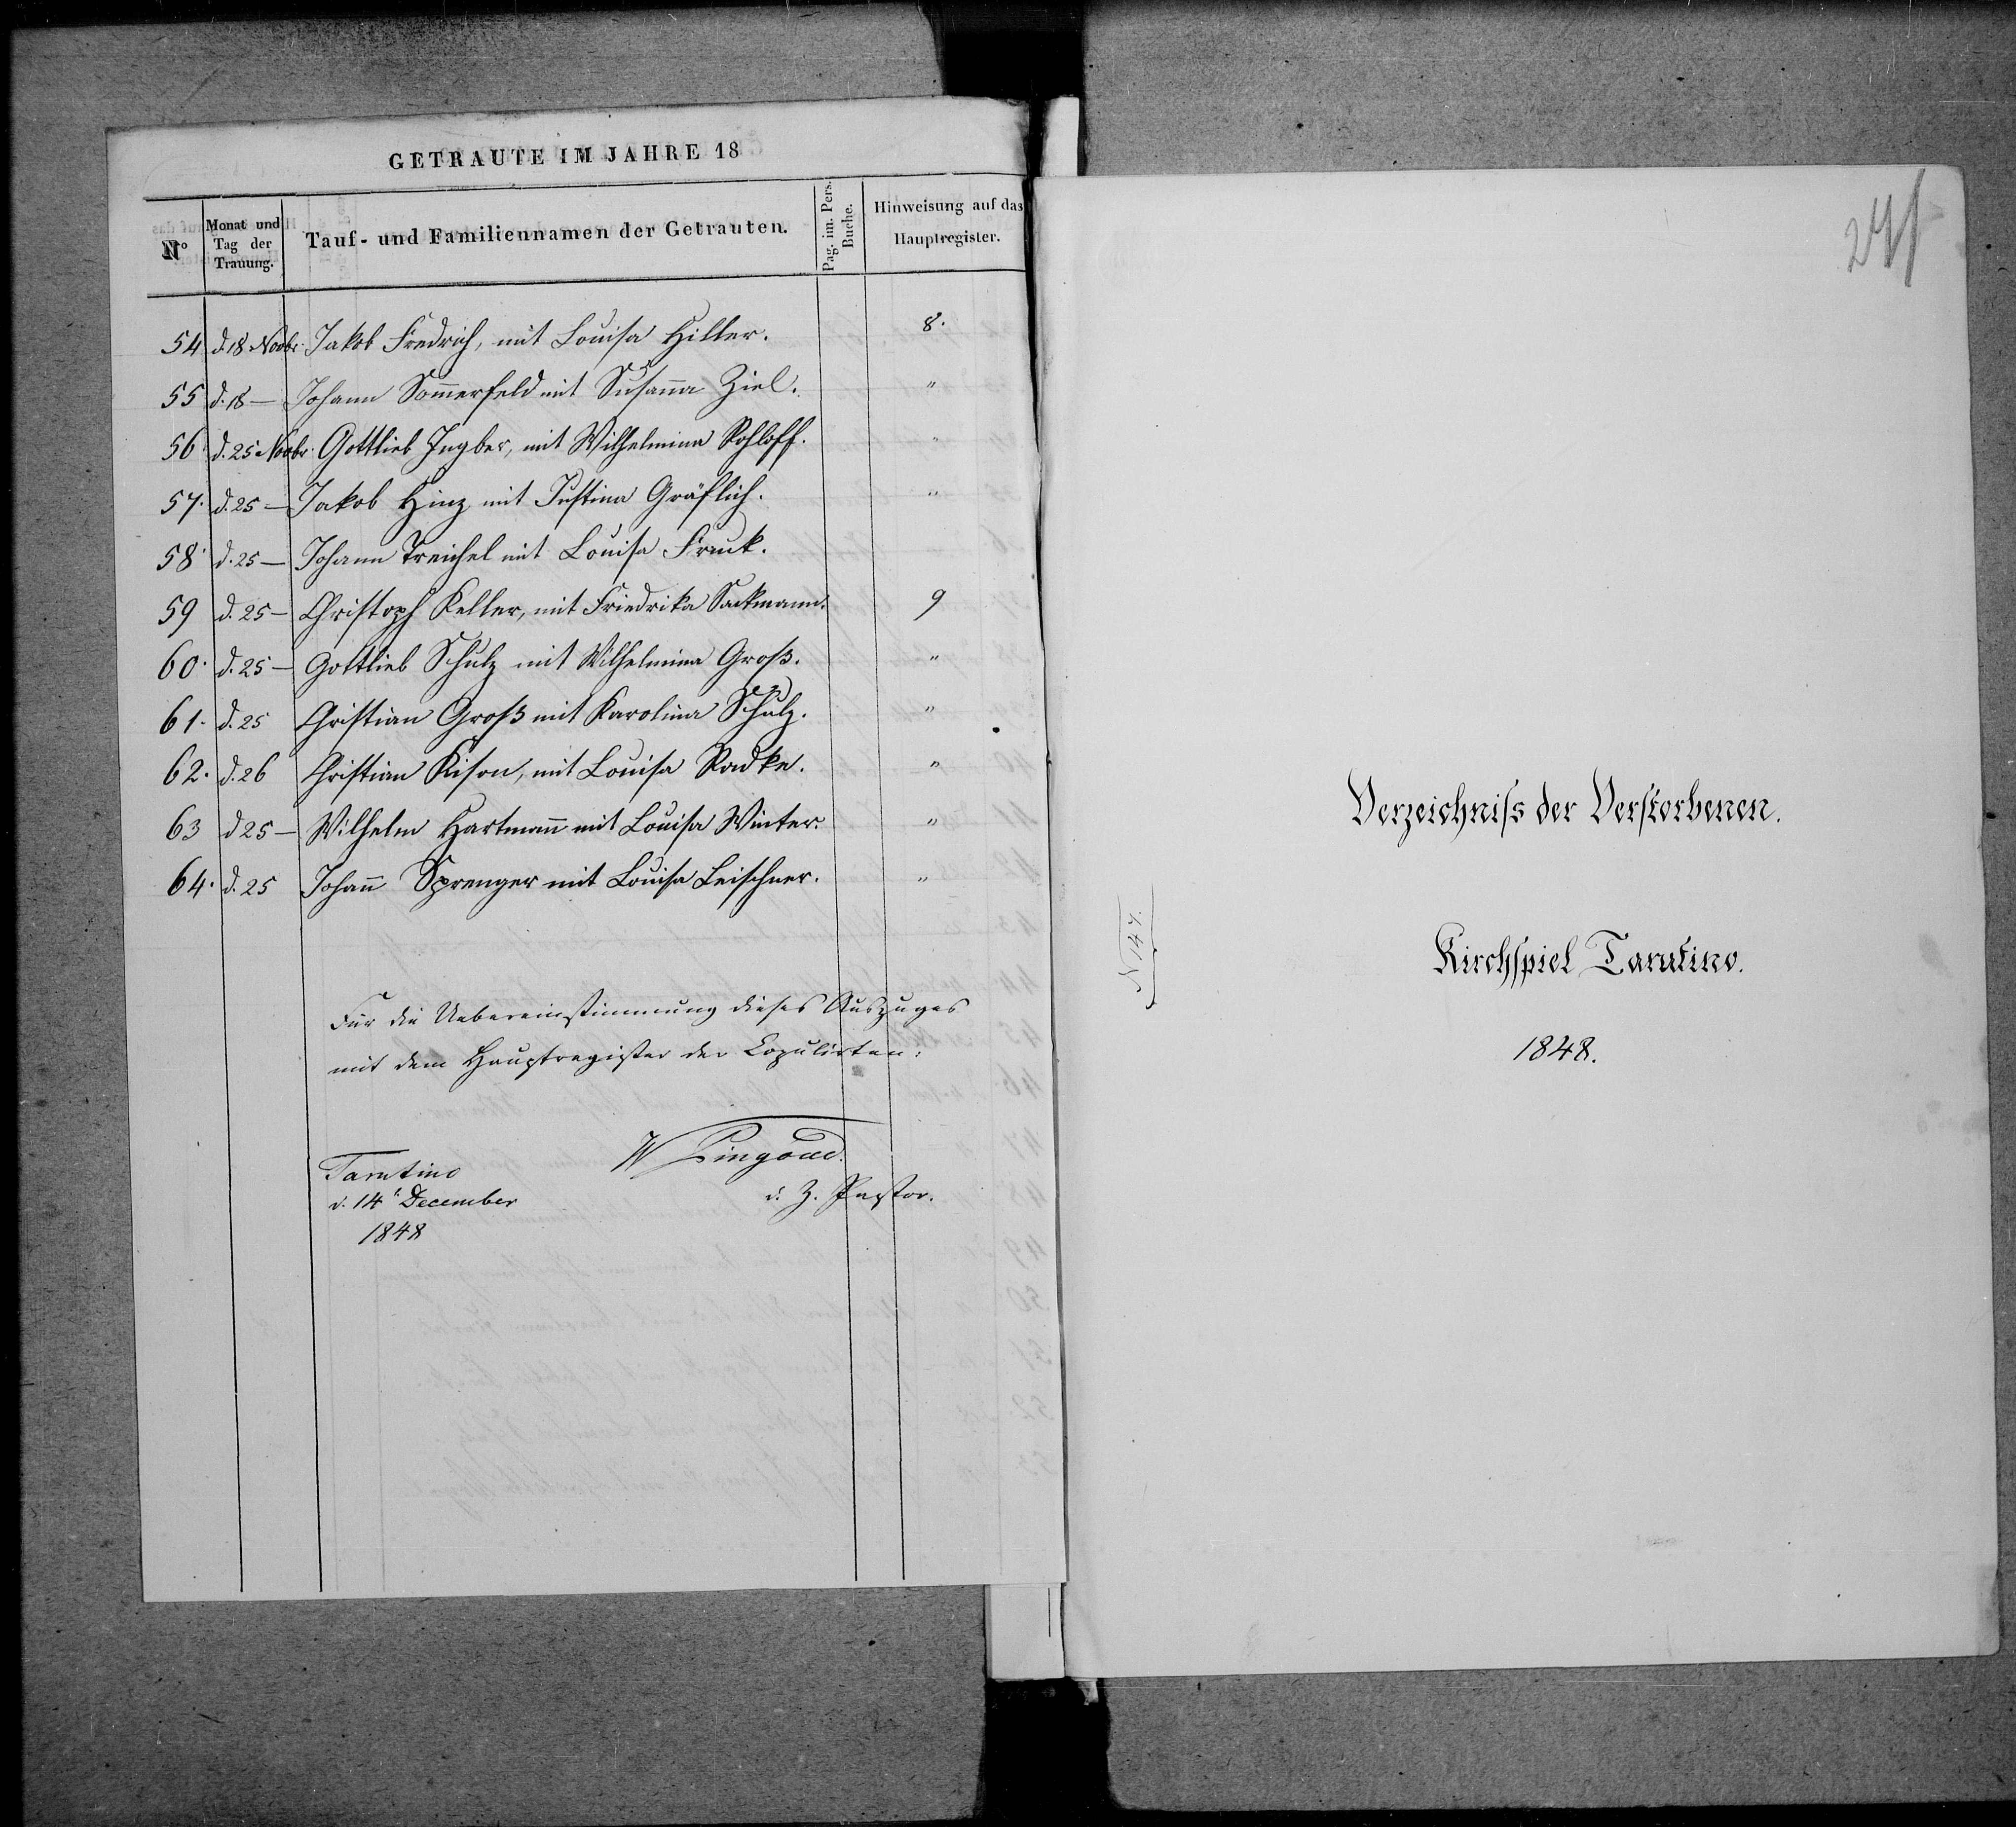 GETRAUTE IM JAHRE 18
N° Monat und Tag der Trauung. Tauf- und Familiennamen der Getrauten. Pag. im. Pers. Buche. Hinweisung auf das Hauptregister.
54 d. 18 Novbr. Jakob Fredrich, mit Louisa Hiller. 8.
55 d. 18 — Johann Som̅erfeld mit Susan̅a Ziel. "
56 d. 25 Novbr. Gottlieb Ingber, mit Wilhelmina Rohloff. "
57. d. 25 — Jakob Hinz mit Justina Gräflich. "
58 d. 25 — Johann Treichel mit Louisa Frank. "
59 d. 25 — Christoph Keller, mit Friedrika Sackmann. 9
60. d. 25 — Gottlieb Schulz mit Wilhelmina Groß. "
61. d. 25 Christian Groß mit Karolina Schulz. "
62. d. 26 Christian Kison, mit Louisa Radke. "
63 d 25 — Wilhelm Hartman̅ mit Louisa Winter. "
64. d. 25 Johan̅ Sprenger mit Louisa Leischner. "
Für die Uebereinstimmung dieses Auszuges
mit dem Hauptregister der Copulirten:
W Pingoud.
Tarutino
d. 14t December
d. Z. Pastor.
1848
Verzeichniss der Verstorbenen.
N 147.
Kirchspiel Tarutino.
1848.